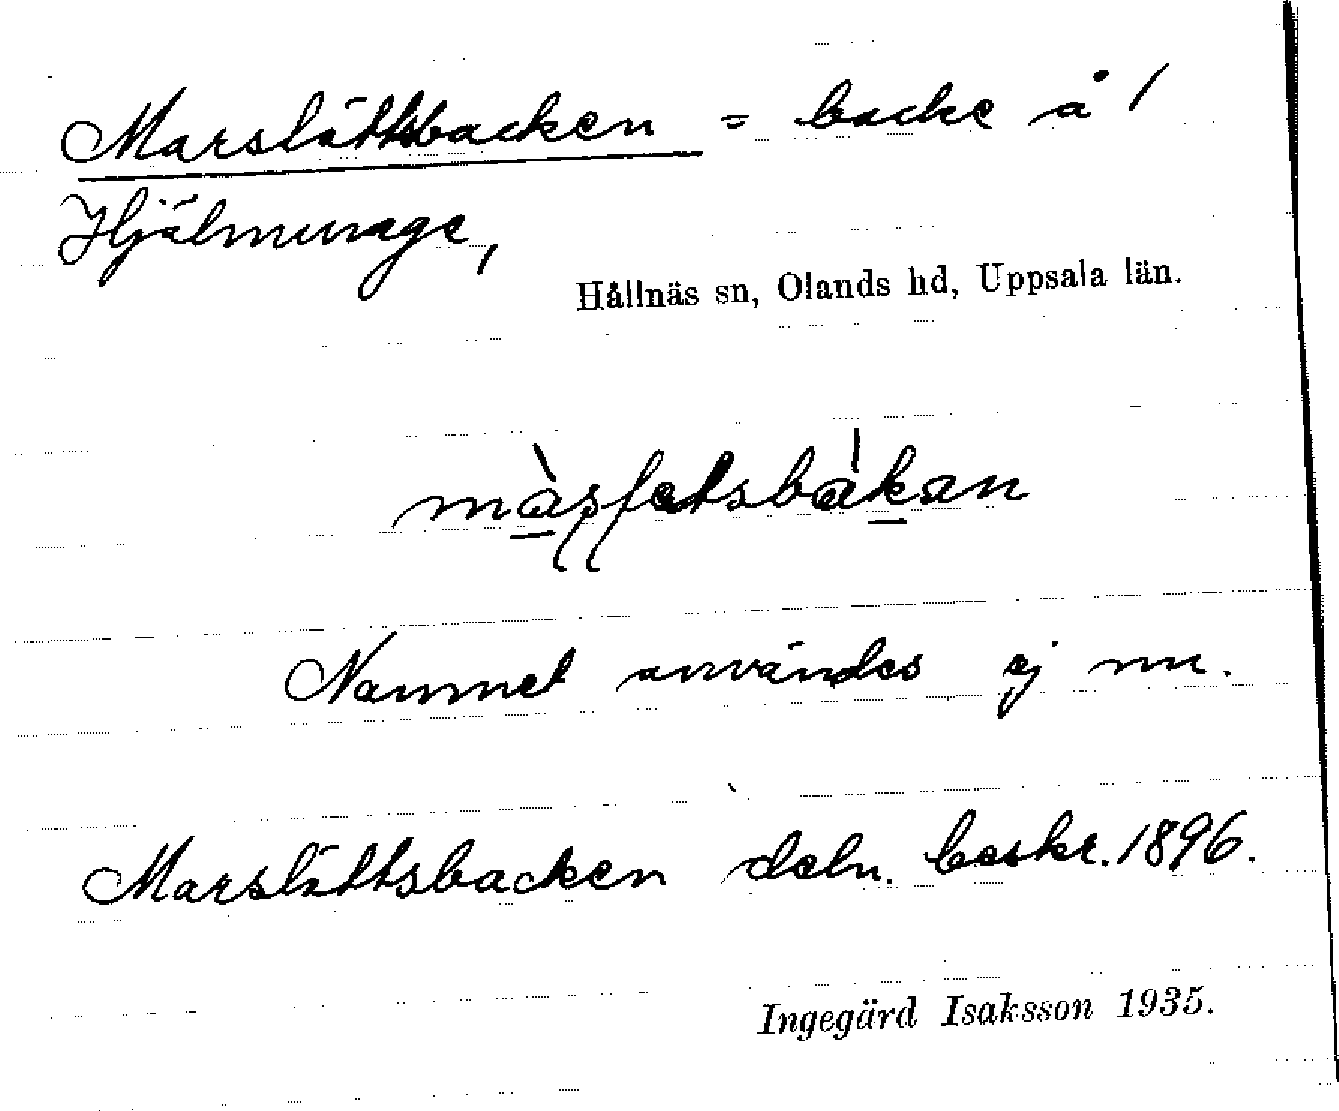 Marslåttsbacken = backe å /
Hjälmunge,
Hållnäs sn, Olands hd, Uppsala län.
Namnet användes ej nu.
Marslåttsbacken deln. beskr. 1896.
Ingegärd Isaksson 1935.